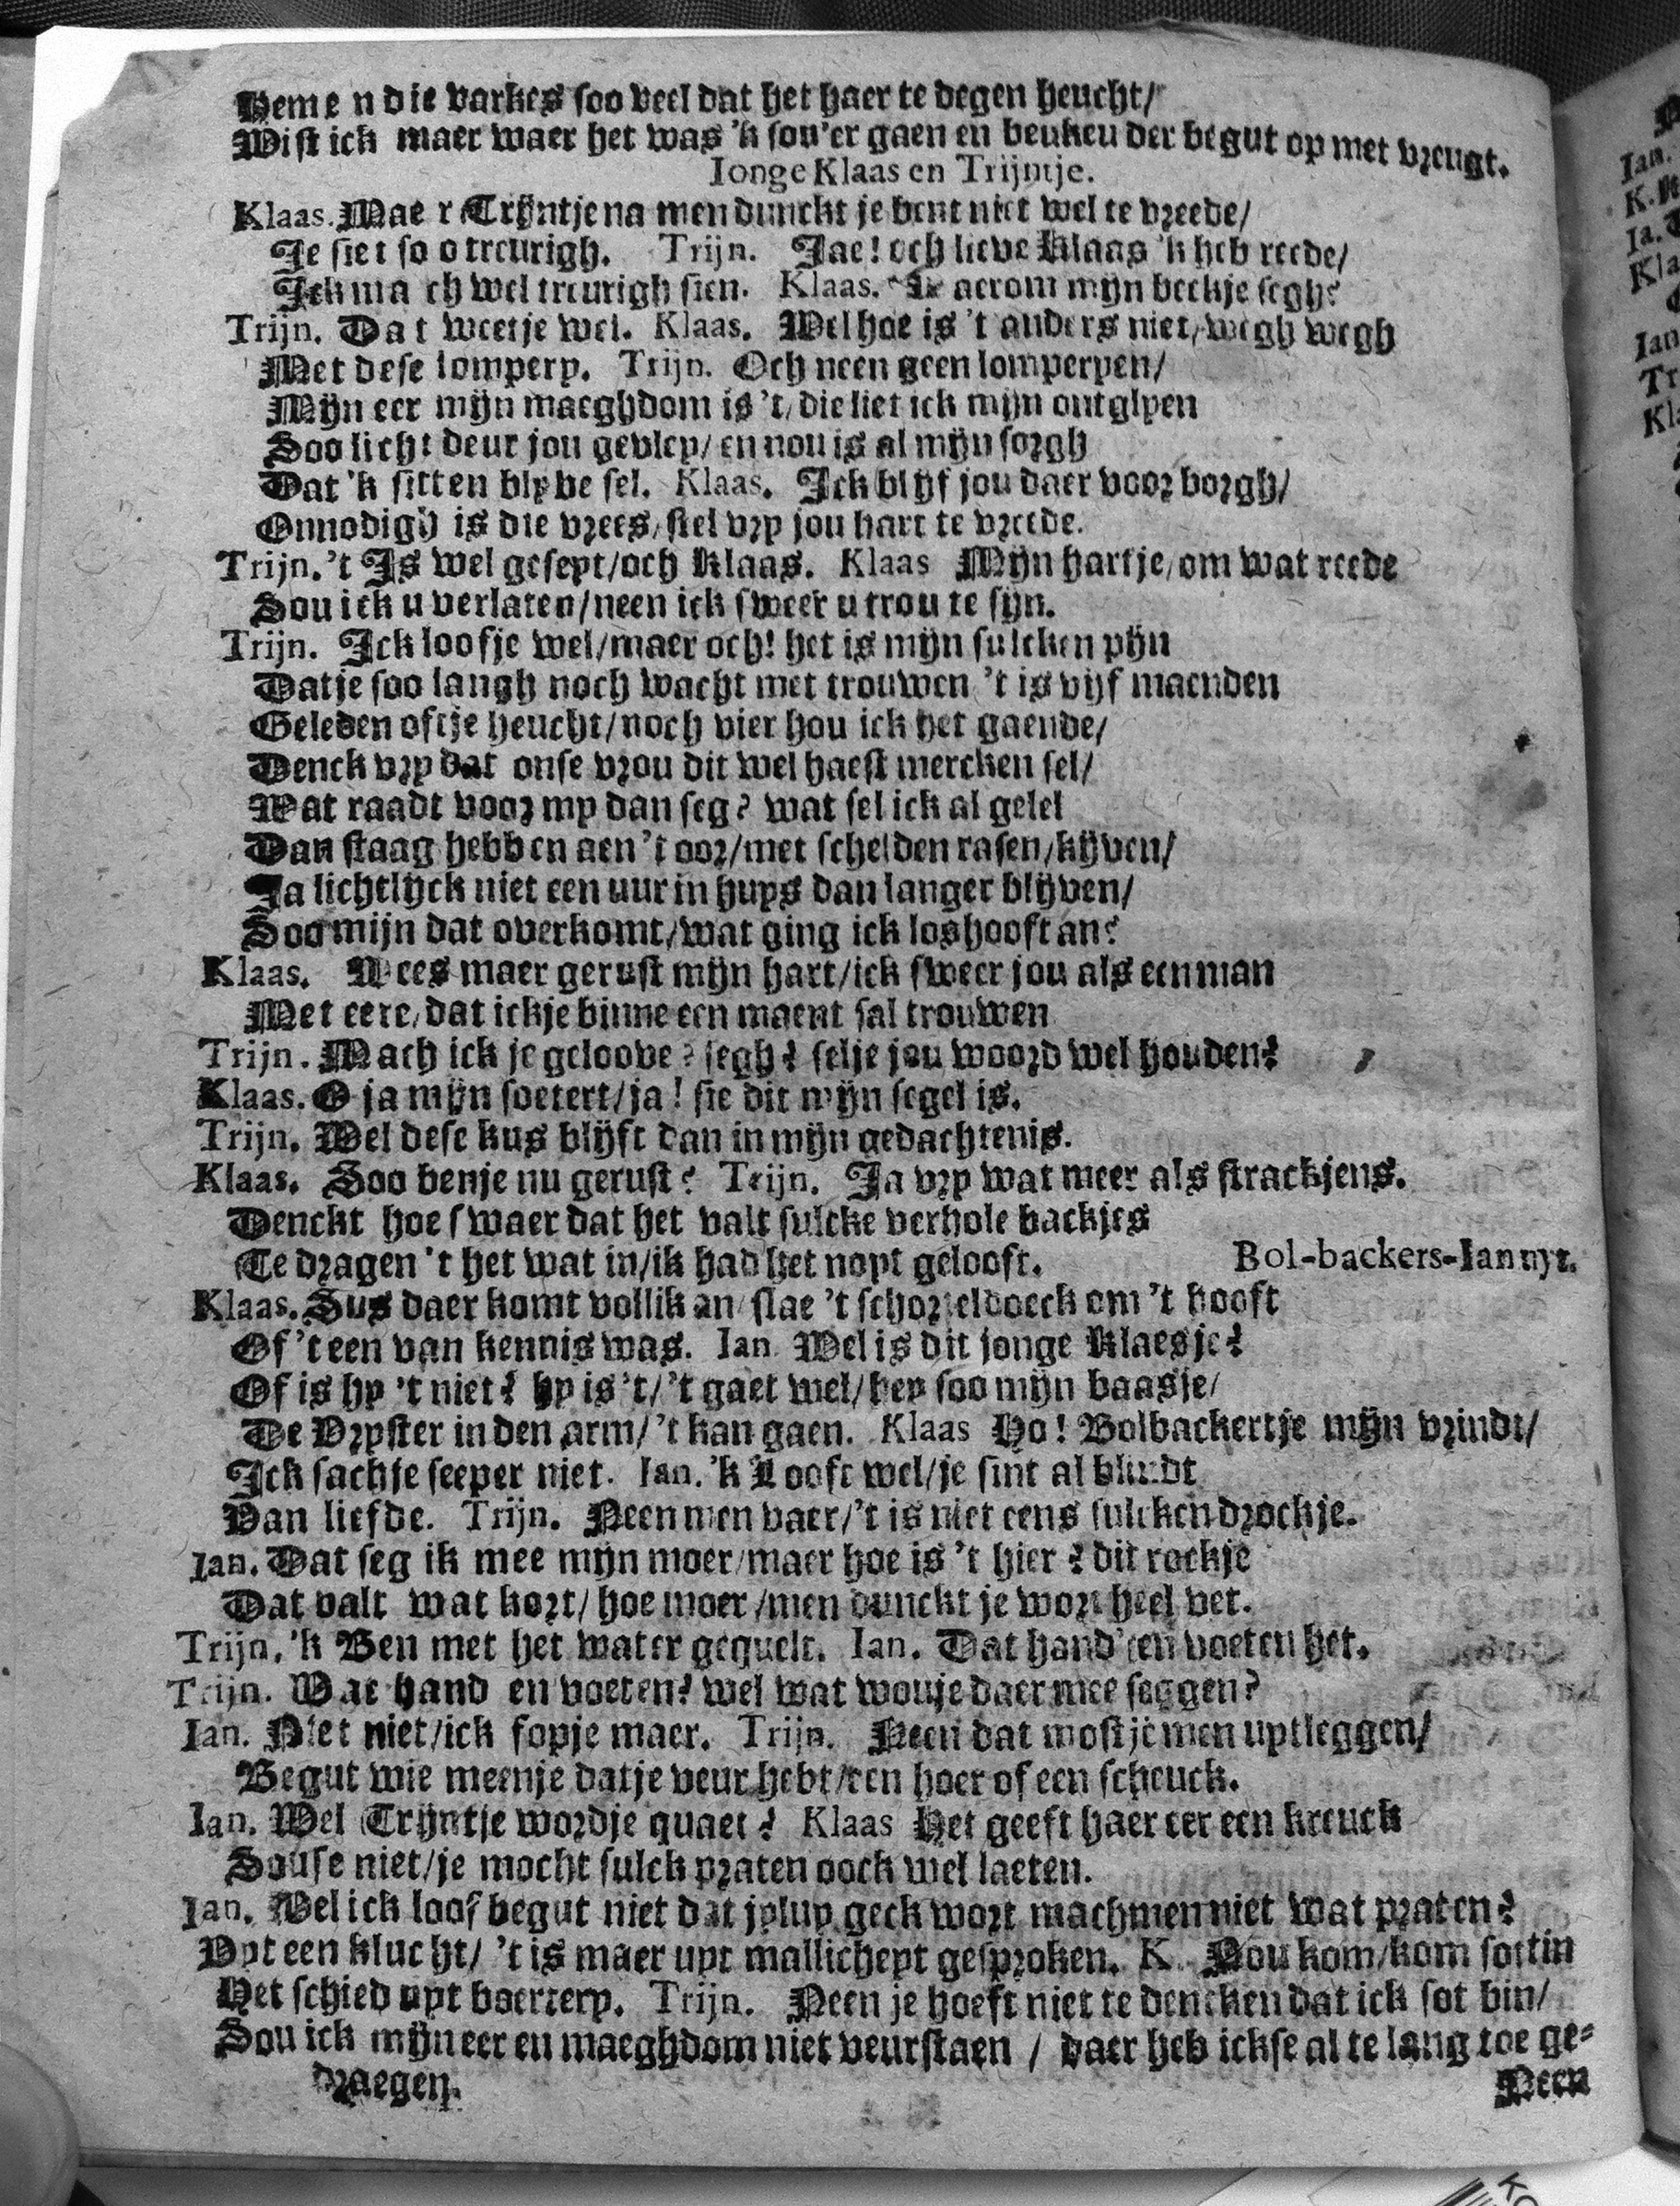 Heme n die varkes soo veel dat het haer te degen heucht/
Wist ick maer waer het was 'k sou'er gaen en beuken der begut op met vreugt.
Ionge Klaas en Trijntje.
Klaas. Mae r Trijntje na men dunckt je bent niet wel te vreede/
Je siet so o treurigh. Trijn. Jae! och lieve Klaas 'k heb reede/
Ick ma ch wel treurigh sien. Klaas. Waerom mijn beckje segh?
Trijn. Da t weetje wel. Klaas. Wel hoe is 't anders niet/wegh wegh
Met dese lompery. Trijn. Och neen geen lomperyen/
Mijn eer mijn maeghdom is 't/die liet ick mijn ontglyen
Soo licht deur jou gevley/en nou is al mijn sorgh
Dat 'k sitten blyve sel. Klaas. Ick blijf jou daer voor borgh/
Onnodigh is die vrees/stel vry jou hart te vreede.
Trijn. 't Is wel geseyt/och Klaas. Klaas Mijn hartje/om wat reede
Sou ick u verlaten/neen ick sweer u trou te sijn.
Trijn. Ick loofje wel/maer och! het is mijn sulcken pijn
Datje soo langh noch wacht met trouwen 't is vijf maenden
Geleden oftje heucht/noch vier hou ick het gaende/
Denck vry dat onse vrou dit wel haest mercken sel/
Wat raadt voor my dan seg? wat sel ick al gelel
Dan staag hebben aen 't oor/met schelden rasen/kijven/
Ja lichtlijck niet een uur in huys dan langer blijven/
Soo mijn dat overkomt/wat ging ick loshooft an?
Klaas. Wees maer gerust mijn hart/ick sweer jou als een man
Met eere/dat ickje binne een maent sal trouwen
Trijn. Mach ick je geloove? segh? selje jou woord wel houden?
Klaas. O ja mijn soetert/ja! sie dit mijn segel is.
Trijn. Wel dese kus blijft dan in mijn gedachtenis.
Klaas. Soo benje nu gerust? Trijn. Ja vry wat meer als strackjens.
Denckt hoe swaer dat het valt sulcke verhole backjes
Te dragen 't het wat in/ik had het noyt gelooft. Bol-backers-Ian uyt.
Klaas. Sus daer komt vollik an/slae 't schorteldoeck om 't hooft
Of 't een van kennis was. Ian Wel is dit jonge Klaesje?
Of is hy 't niet? hy is 't/'t gaet wel/hey soo mijn baasje/
De Vryster in den arm/'t kan gaen. Klaas Ho! Bolbackertje mijn vrindt/
Ick sachje seeper niet. Ian. 'k Looft wel/je sint al blindt
Van liefde. Trijn. Neen men vaer/'t is niet eens sulcken drockje.
Ian. Dat seg ik mee mijn moer/maer hoe is 't hier? dit rockje
Dat valt wat kort/hoe moer/men dunckt je wort heel vet.
Trijn. 'k Ben met het water gequelt. Ian. Dat hand' en voeten het.
Trijn. Wat hand en voeten? wel wat wouje daer mee seggen?
Ian. Niet niet/ick fopje maer. Trijn. Neen dat mostje men uytleggen/
Begut wie meenje datje veur hebt/een hoer of een scheuck.
Ian. Wel Trijntje wordje quaet? Klaas Het geeft haer eer een kreuck
Souse niet/je mocht sulck praten oock wel laeten.
Ian. Wel ick loof begut niet dat jyluy geck wort machmen niet wat praten?
Uyt een klucht/'t is maer uyt mallicheyt gesproken. K. Nou kom/kom sottin
Het schied uyt boerrery. Trijn. Neen je hoeft niet te dencken dat ick sot bin/
Sou ick mijn eer en maeghdom niet veurstaen / daer heb ickse al te lang toe ge-
draegen.
Neen